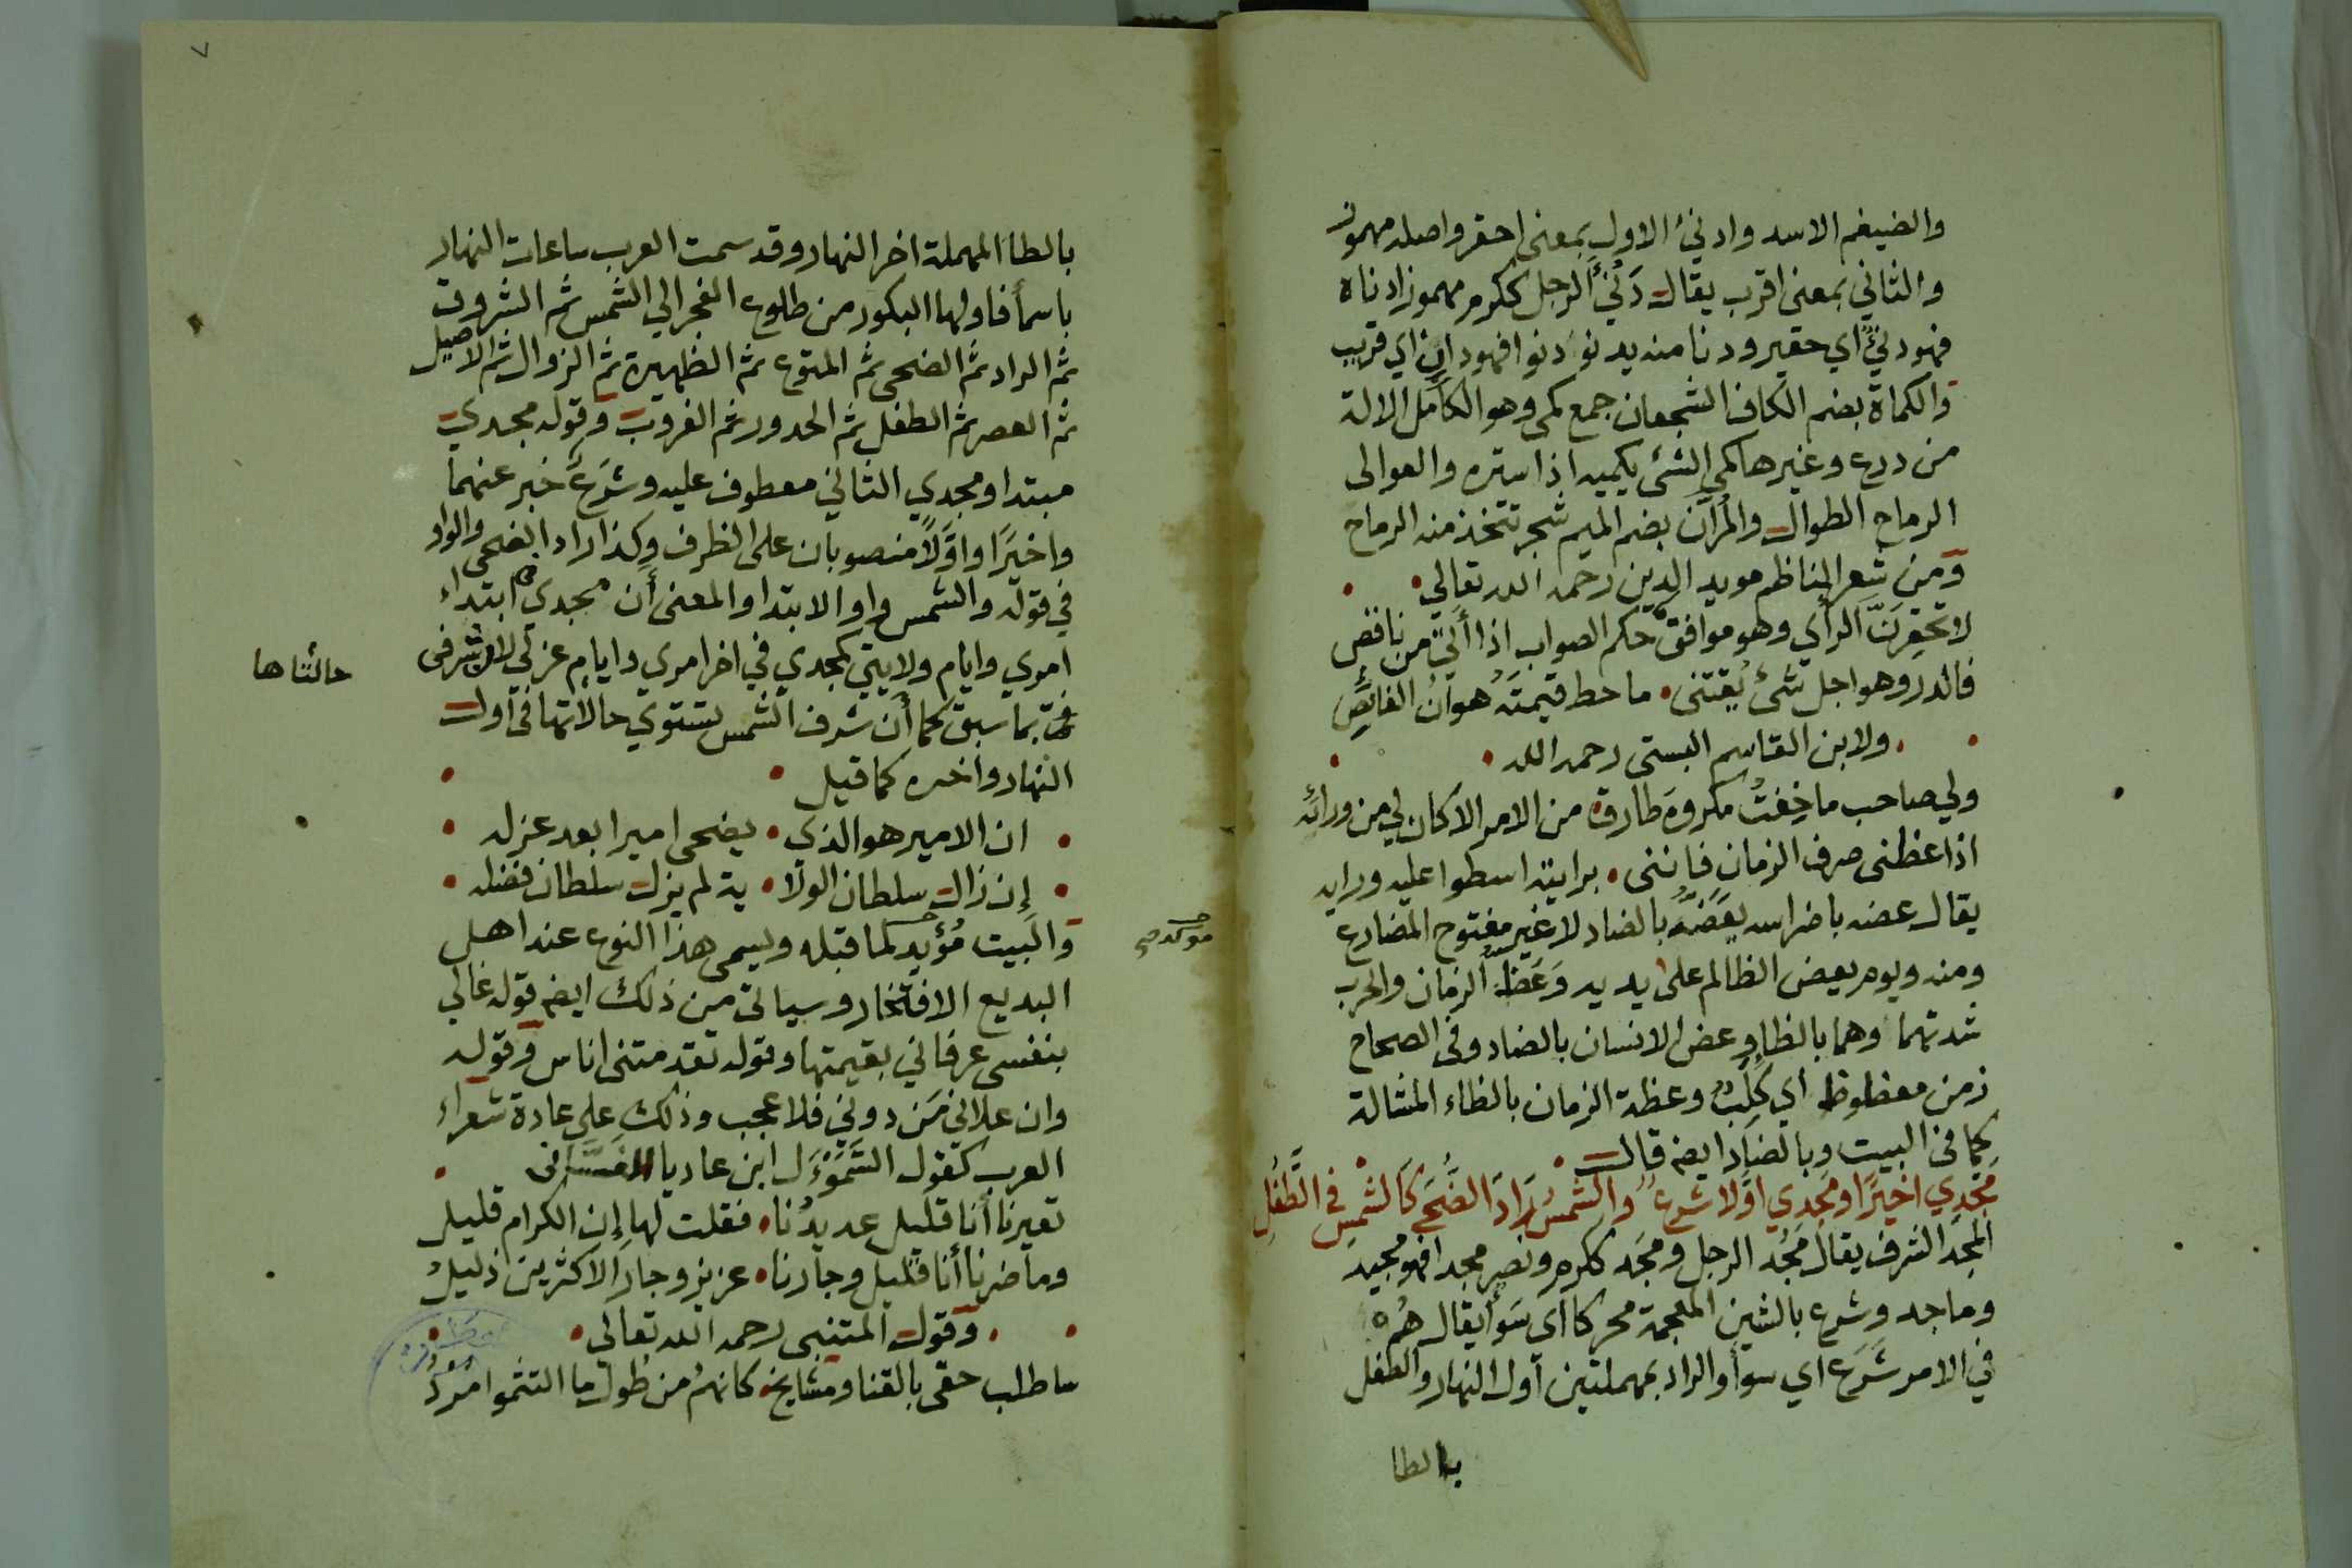 والضيغم الاسد وادنئ الاول بمعنى احقر واصله مهموز
والثاني بمعنى اقرب يقال دَنُئَ الرجل ككرم مهموز ادناة
فهو دنئٌ اي حقير ودنا منه يدنو دنوا فهو دانٍ اي قريب
والكماة بضم الكاف الشجعان جمع كمي وهو الكامل الالة
من درع وغيرها كمي الشئ يكميه اذا ستره والعوالى
الرماح الطوال والمُرّان بضم الميم شجر تتخذ منه الرماح
ومن شعر الناظم مويد الدين رحمه الله تعالي
لا تحقرنّ الرأي وهو موافق حكم الصواب اذا أتى من ناقص
فالدر وهو اجل شئ يقتنى ما حط قيمتَه هوانُ الغايصِ
ولابن القاسم البستى رحمه الله
ولي صاحب ما خِفتُ مكروهَ طارقة من الامر الا كان لي من ورائه
اذا عظنى صرف الزمان فاننى برايته اسطوا عليه ورايه
يقال عضه باضراسه يعَضّه بالضاد لاغير مفتوح المضارع
ومنه ويوم يعض الظالم على يديه وَعَظّ الزمان والحرب
شدتهما وهما بالظا وعض الانسان بالضاد وفى الصحاح
زمن معظوظ اي كَلِبٌ وعظة الزمان بالظاء المشالة
كما فى البيت وبالضاد ايضه قال
مَجْدِي اخيرًا ومَجدي اوّلا شرعٌ والشمسُ رَادَ الضُّحَى كَالشمسِ فى الطَّفَلِ
المَجد الشرف يقال مَجُد الرجل ومجَد ككرم ونصر مجدا فهو مجيد
وماجد وشرع بالشين المعجمة محركا اي سَوأ يقال هُم
في الامر شَرَع اي سوأ والراد بمهملتين اول النهار والطفل
بالطا
٧
بالطا المهملة اخر النهار وقد سمت العرب ساعات النهار
باسمأ فاولها البكور من طلوع الفجر الي الشمس ثم الشروق
ثم الراد ثم الضحى ثم المتوع ثم الظهيرة ثم الزوال ثم الاصيل
ثم العصر ثم الطفل ثم الحدور ثم الغروب وقوله مجدي
مبتدا ومجدي الثاني معطوف عليه وشَرَعٌ خبر عنهما
واخيرًا واوّلاً منصوبان على الظرف وكذا راد الضحى والواو
في قوله والشمس واو الابتدا والمعنى أن مجدي ابتداء
اموري وايام ولايتي كمجدي في اخر اموري وايام عزلي لان شرفى
بما سبق كما أن شرف الشمس يستوي حالاتها فى اول
حالتاها
النهار واخره كما قيل
ان الامير هو الذى يضحى اميرا بعد عزله
إن زال سلطان الولا ية لم يزل سلطان فضله
والبيت مُؤيد لما قبله ويسمى هذا النوع عند اهل
موكد صح
البديع الافتخار وسياتى من ذلك ايضه قوله غالي
بنفسى عرفاني بقيمتها وقوله تقدمتنى اناس وقوله
وان علاني مَن دوني فلا عجب وذلك على عادة شعراء
العرب كقول السَّمَوْءَل ابن عاديا الغسّانى
تعيرنا أنا قليل عديدُنا فقلت لها إن الكرام قليل
وما ضرنا أنا قليل وجارنا عزيز وجار الاكثرين ذليلُ
وقول المتنبى رحمه الله تعالى
ساطلب حقى بالقنا ومشايخ كانهمُ من طول ما التثموا مردُ